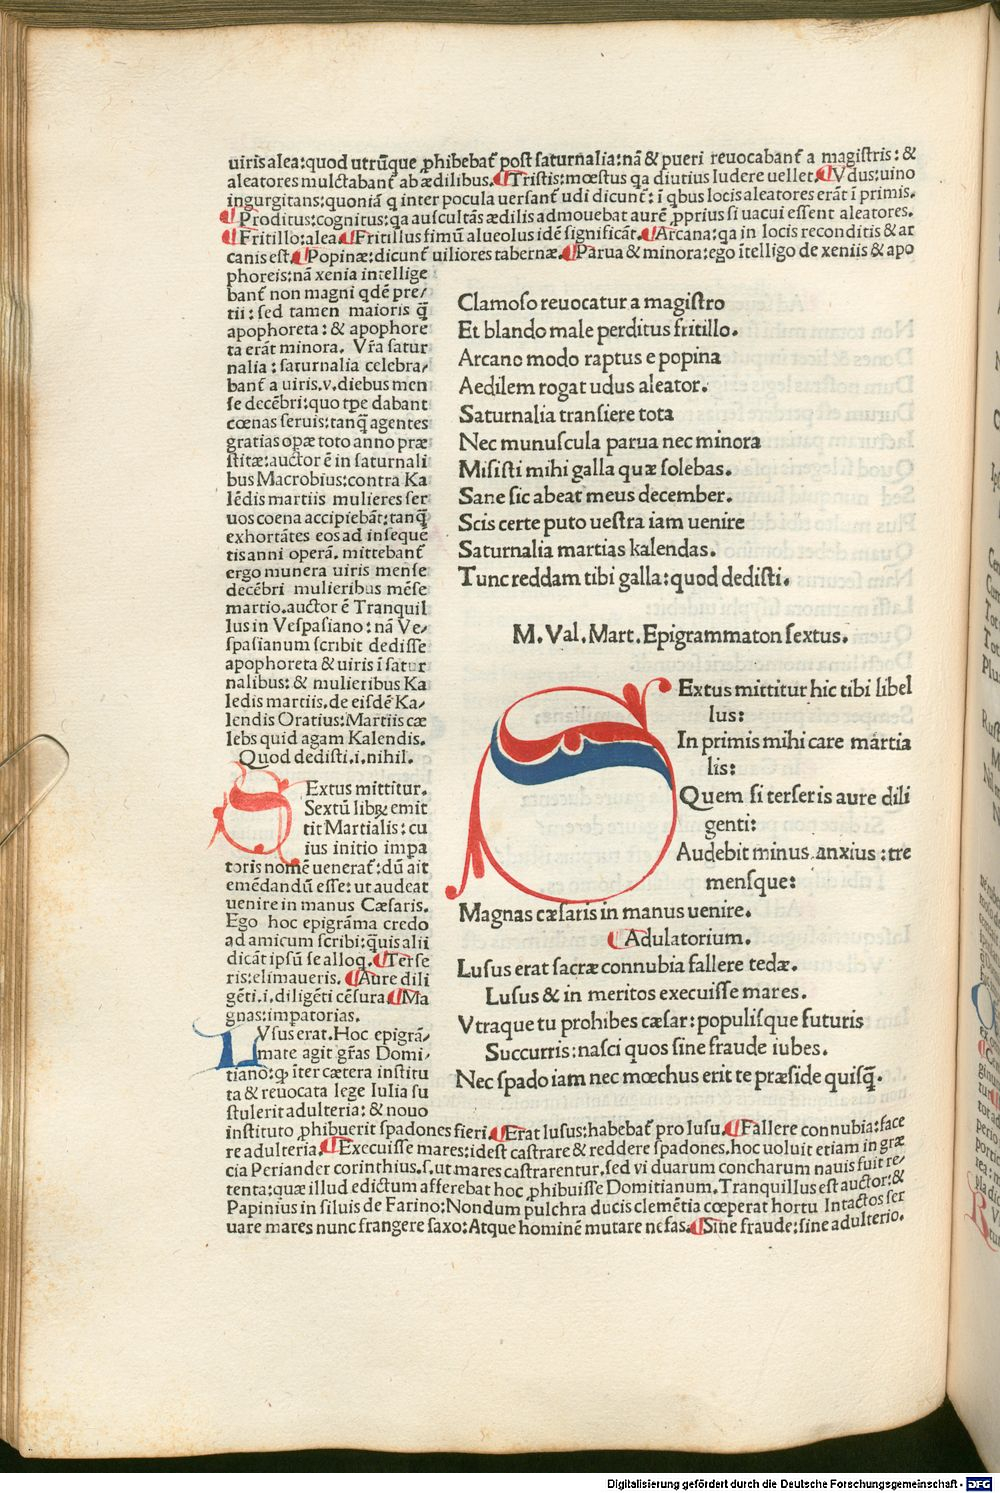 uiris alea:quod utrūque ꝓhibebat᷑ post saturnalia:nā & pueri reuocabant᷑ a magistris:&
aleatores mulctabant᷑ ab ædilibus.¶Tristis:mœstus qa diutius ludere uellet.¶Vdus:uino
ingurgitans:quoniā q inter pocula uersant᷑ udi dicunt᷑: ī qbus locis aleatores erāt ī primis.
¶Proditus:cognitus:qa auscultās ædilis admouebat aurē ꝓprius si uacui essent aleatores.
¶Fritillo:alea.¶Fritillus simū alueolus idē significāt.¶Arcana:qa in locis reconditis & ar
canis est.¶Popinæ:dicunt᷑ uiliores tabernæ.¶Parua & minora:ego ītelligo de xeniis & apo
phoreis:nā xenia intellige
bant᷑ non magni qdē pre/
tii: sed tamen maioris q̄
apophoreta:& apophore
ta erāt minora. Vr̄a satur
nalia: saturnalia celebra/
bant᷑ a uiris.v.diebus men
se decēbri:quo tpe dabant
cœnas seruis:tanq̄ agentes
gratias opæ toto anno præ
stitæ:auctor ē in saturnali
bus Macrobius:contra Ka
lēdis martiis mulieres ser
uos coena accipiebāt:tanq̄
exhortātes eos ad inseque
tis anni operā. mittebant᷑
ergo munera uiris mense
decēbri mulieribus mēse
martio.auctor ē Tranquil
lus in Vespasiano: nā Ve/
spasianum scribit dedisse
apophoreta & uiris ī satur
nalibus: & mulieribus Ka
ledis martiis.de eisdē Ka/
lendis Oratius:Martiis cæ
lebs quid agam Kalendis.
Quod dedisti.i.nihil.
Clamoso reuocatur a magistro
Et blando male perditus fritillo.
Arcano modo raptus e popina
Aedilem rogat udus aleator.
Saturnalia transiere tota
Nec munuscula parua nec minora
Misisti mihi galla quæ solebas.
Sane sic abeat meus december.
Scis certe puto uestra iam uenire
Saturnalia martias kalendas.
Tunc reddam tibi galla:quod dedisti.
M.Val.Mart.Epigrammaton sextus.
SExtus mittitur hic tibi libel
lus:
In primis mihi care martia
lis:
Quem si terseris aure dili
genti:
Audebit minus anxius:tre
mensque:
Magnas cæsaris in manus uenire.
¶Adulatorium.
Lusus erat sacræ connubia fallere tedæ.
Lusus & in meritos execuisse mares.
Vtraque tu prohibes cæsar:populisque futuris
Succurris:nasci quos sine fraude iubes.
Nec spado iam nec mœchus erit te præside quisq̄.
SExtus mittitur.
Sextū libꝝ emit
tit Martialis: cu
ius initio impa
toris nomē uenerat᷑:dū ait
emēdandū esse:ut audeat
uenire in manus Cæsaris.
Ego hoc epigrāma credo
ad amicum scribi:q̄uis alii
dicāt ipsū se alloq.¶Terse
ris:elimaueris.¶Aure dili
gēti.i.diligēti cēsura.¶Ma
gnas:impatorias.
LVsus erat.Hoc epigrā/
mate agit gr̄as Domi/
tiano:ꝙ iter cætera institu
ta & reuocata lege Iulia su
stulerit adulteria: & nouo
instituto ꝓhibuerit spadones fieri.¶Erat lusus:habebat᷑ pro lusu.¶Fallere connubia:face
re adulteria.¶Execuisse mares:idest castrare & reddere spadones.hoc uoluit etiam in græ
cia Periander corinthius.s.ut mares castrarentur.sed vi duarum concharum nauis fuit re/
tenta:quæ illud edictum afferebat hoc ꝓhibuisse Domitianum.Tranquillus est auctor:&
Papinius in siluis de Farino:Nondum pulchra ducis clemētia cœperat hortu Intactos ser
uare mares nunc frangere saxo:Atque hominē mutare nefas.¶Sine fraude:sine adulterio.
Digitalisierung gefördert durch die Deutsche Forschungsgemeinschaft - DFG